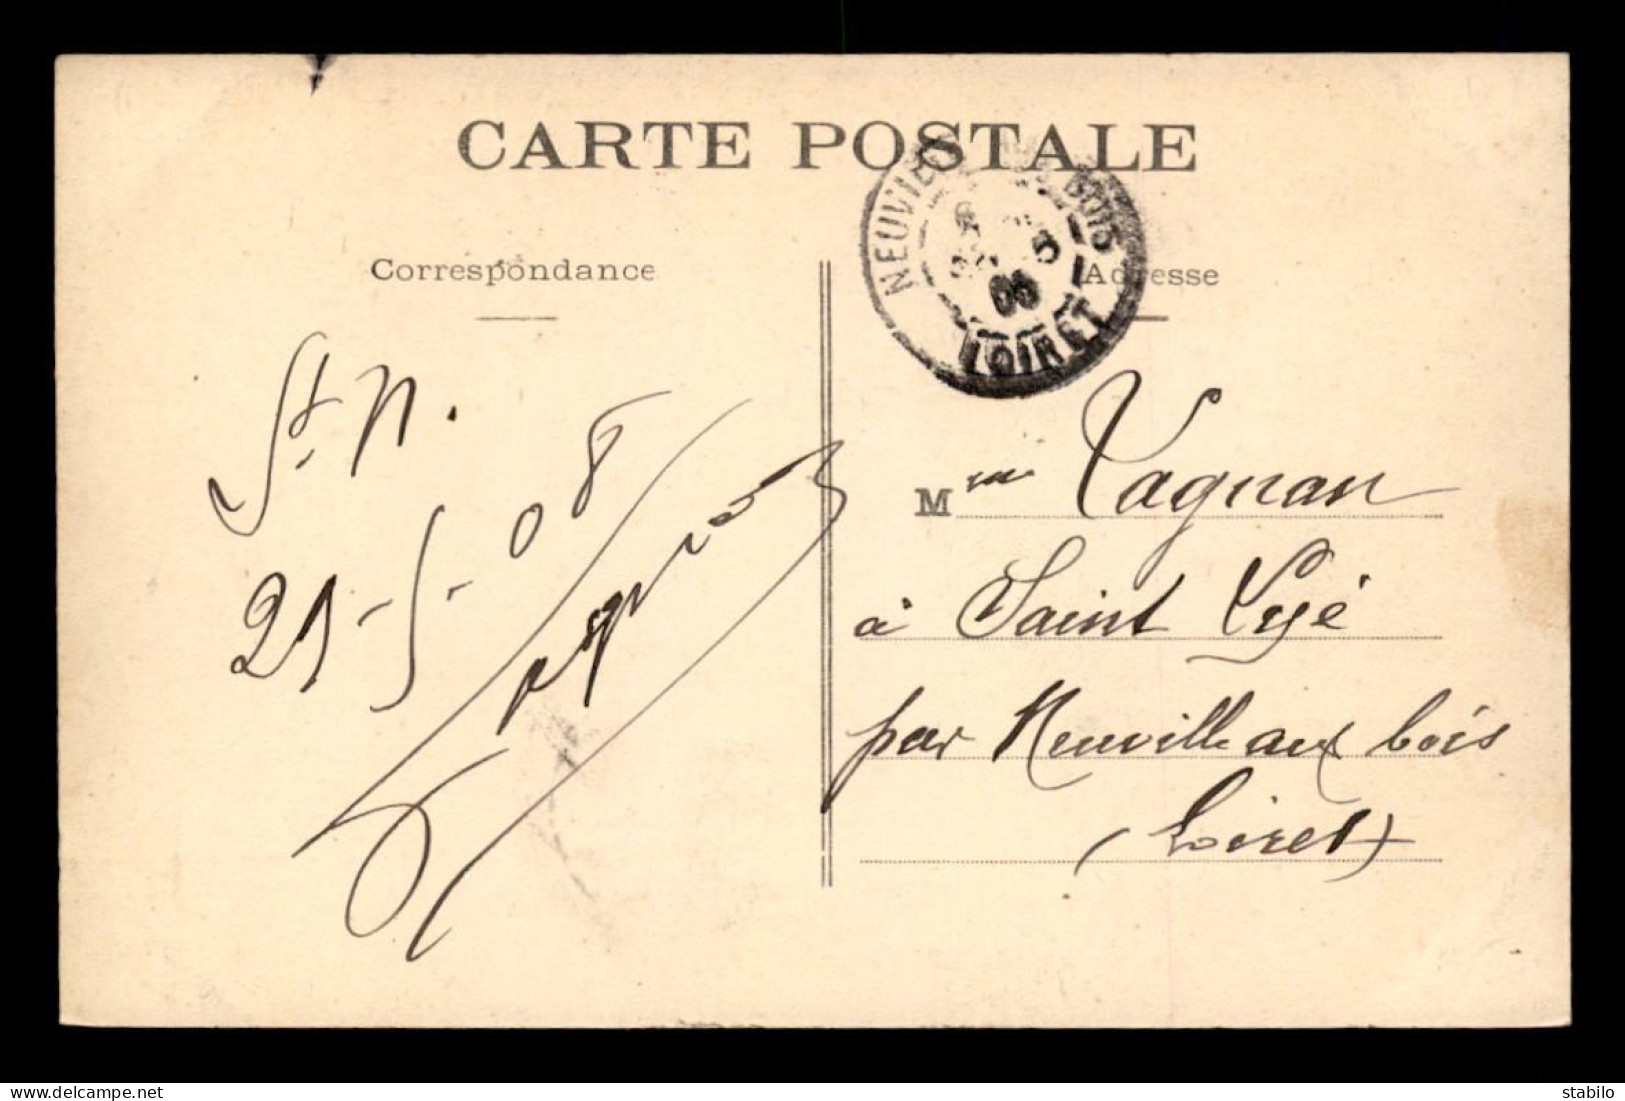 CARTE POSTALE
Correspondance
Adresse
NEUVILLE BOIS
5
08
LOIRET
St. N.
21-5-08
M me Vagnan
à Saint Lyé
par Neuville aux bois
(Loiret)
delcampe.net
stabilo